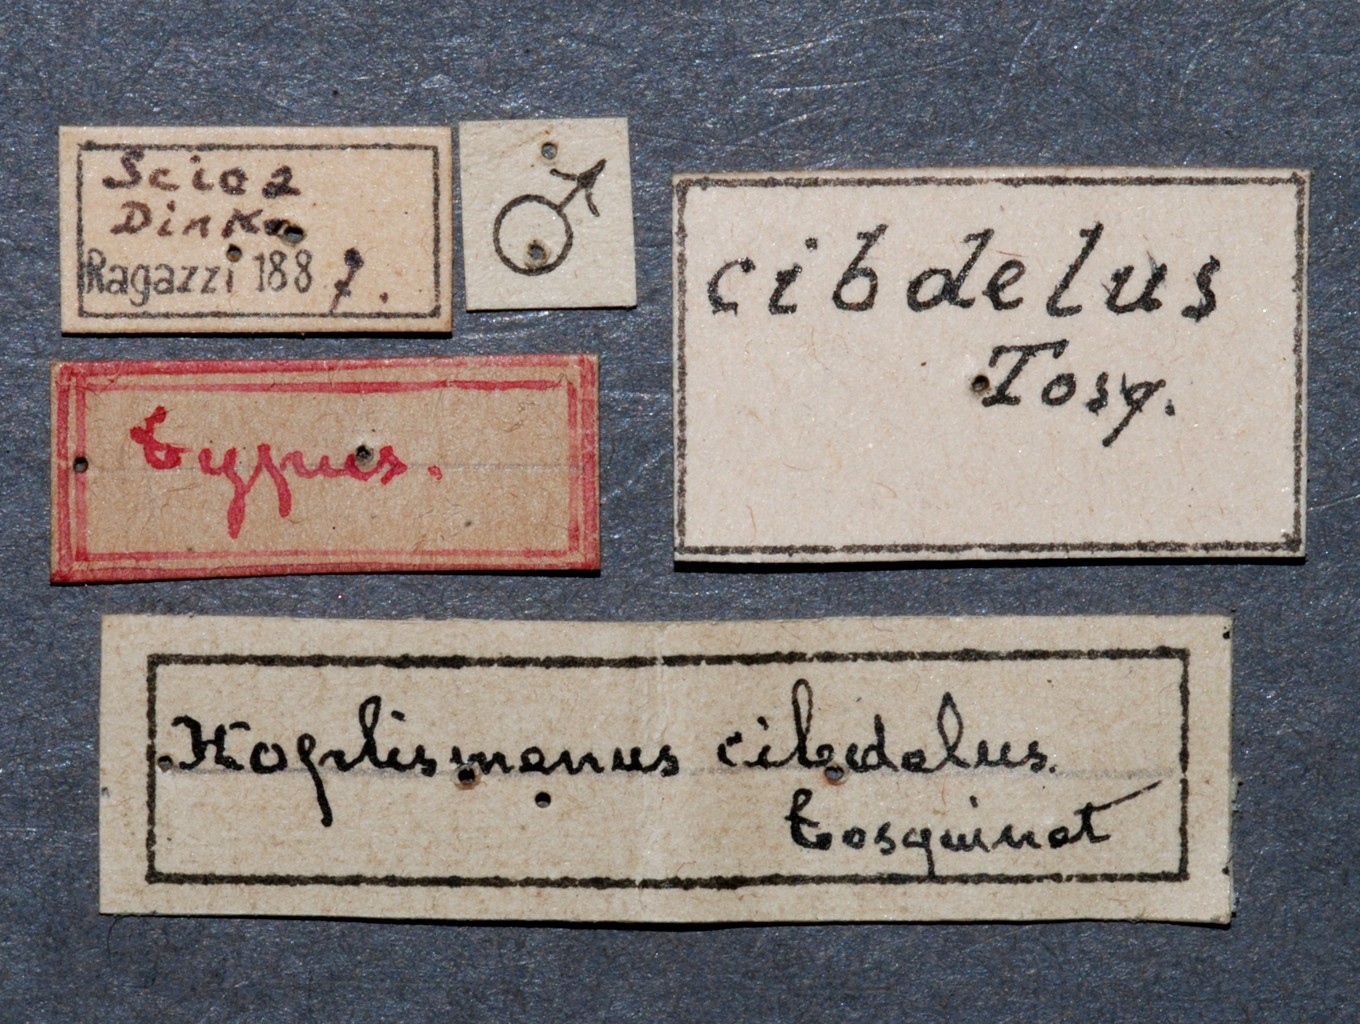 Scioa
Dinka
Ragazzi 1887.
♂
cibdelus
Tosq.
typus.
Hoplismenus cibdelus.
Tosquinet